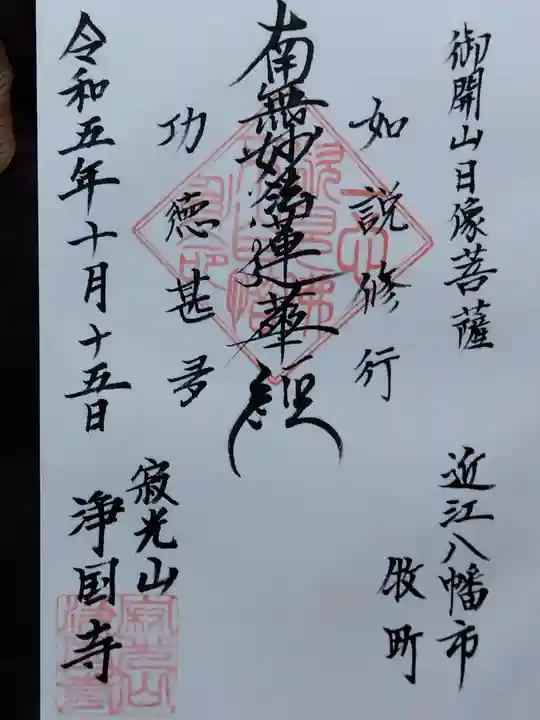 御開山日像菩薩
近江八幡市
牧町
如説修行
南無妙法蓮華経
功徳甚多
令和五年十月十五日
寂光山
浄国寺
寂光山